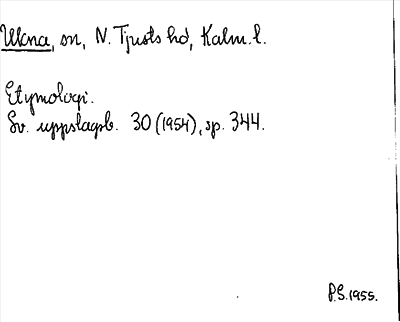 Ukna, sn, N. Tjusts hd, Kalm. l.
Etymologi.
Sv. uppslagsb. 30 (1954), sp. 344.
P.S. 1955.